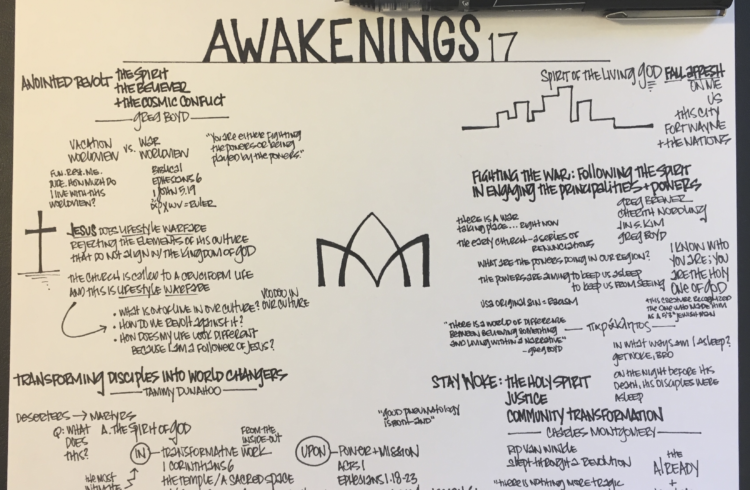 AWAKENINGS 17
ANOINTED REVOLT: THE SPIRIT
THE BELIEVER
+ THE COSMIC CONFLICT
GREG BOYD
VACATION WORLDVIEW VS. WAR WORLDVIEW
FUN. REST. ME.
DUDE. HOW MUCH DO
I LIVE WITH THIS
WORLDVIEW?
BIBLICAL
EPHESIANS 6
1 JOHN 5:19
= RULER
"YOU ARE EITHER FIGHTING
THE POWERS OR BEING
PLAYED BY THE POWERS."
JESUS DOES LIFESTYLE WARFARE
REJECTING THE ELEMENTS OF HIS CULTURE
THAT DO NOT ALIGN W/ THE KINGDOM OF GOD
THE CHURCH IS CALLED TO A CRUCIFORM LIFE
AND THIS IS LIFESTYLE WARFARE
• WHAT IS OUT OF LINE IN OUR CULTURE?
VOODOO IN
OUR CULTURE
• HOW DO WE REVOLT AGAINST IT?
• HOW DOES MY LIFE LOOK DIFFERENT
BECAUSE I AM A FOLLOWER OF JESUS?
TRANSFORMING DISCIPLES INTO WORLD CHANGERS
TAMMY DUNAHOO
DESERTERS → MARTYRS
Q: WHAT
DOES
THIS?
A. THE SPIRIT OF GOD
FROM THE
INSIDE-OUT
IN — TRANSFORMATIVE WORK
1 CORINTHIANS 6
THE TEMPLE / A SACRED SPACE
WE MOST
INTIMATE
"GOOD PNEUMATOLOGY
IS BOTH-AND"
UPON — POWER + MISSION
ACTS 1
EPHESIANS 1:18-23
SPIRIT OF THE LIVING GOD FALL AFRESH
ON ME
US
THIS CITY
FORT WAYNE
+ THE NATIONS
FIGHTING THE WAR: FOLLOWING THE SPIRIT
IN ENGAGING THE PRINCIPALITIES + POWERS
GREG BREWER
CHERITH NORDLING
JIN S. KIM
GREG BOYD
THERE IS A WAR
TAKING PLACE... RIGHT NOW
THE EARLY CHURCH — A SERIES OF
RENUNCIATIONS
WHAT ARE THE POWERS DOING IN OUR REGION?
THE POWERS ARE AIMING TO KEEP US ASLEEP
TO KEEP US FROM SEEING
US ORIGINAL SIN = RACISM
I KNOW WHO
YOU ARE; YOU
ARE THE HOLY
ONE OF GOD
THIS CREATURE RECOGNIZED
THE ONE WHO MADE HIM
AS A 5'3" JEWISH MAN
"THERE IS A WORLD OF DIFFERENCE
BETWEEN BELIEVING SOMETHING
AND LIVING WITHIN A NARRATIVE"
- GREG BOYD
παράκλητος
IN WHAT WAYS AM I ASLEEP?
GET WOKE, BRO
ON THE NIGHT BEFORE HIS
DEATH, HIS DISCIPLES WERE
ASLEEP
STAY WOKE: THE HOLY SPIRIT
JUSTICE
COMMUNITY TRANSFORMATION
CHARLES MONTGOMERY
RIP VAN WINKLE
SLEPT THROUGH A REVOLUTION
"THERE IS NOTHING MORE TRAGIC
THE
ALREADY
+